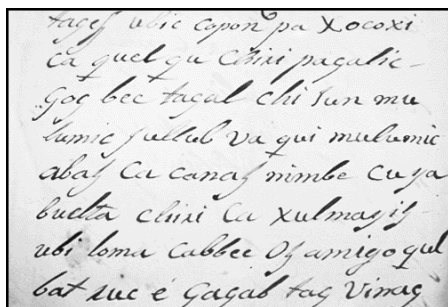 tages ubic copon pa xocoxi
ca quel qu chiri pagalic-
goc bec tagal chi Jun mu
lumic Jullub va qui mulumic
abas Ca canas nimbe cuya
buelta chiri Ca xulmasis
ubi loma Cabbec Os amigo qul
bat ruc é Gagal tag Vinag